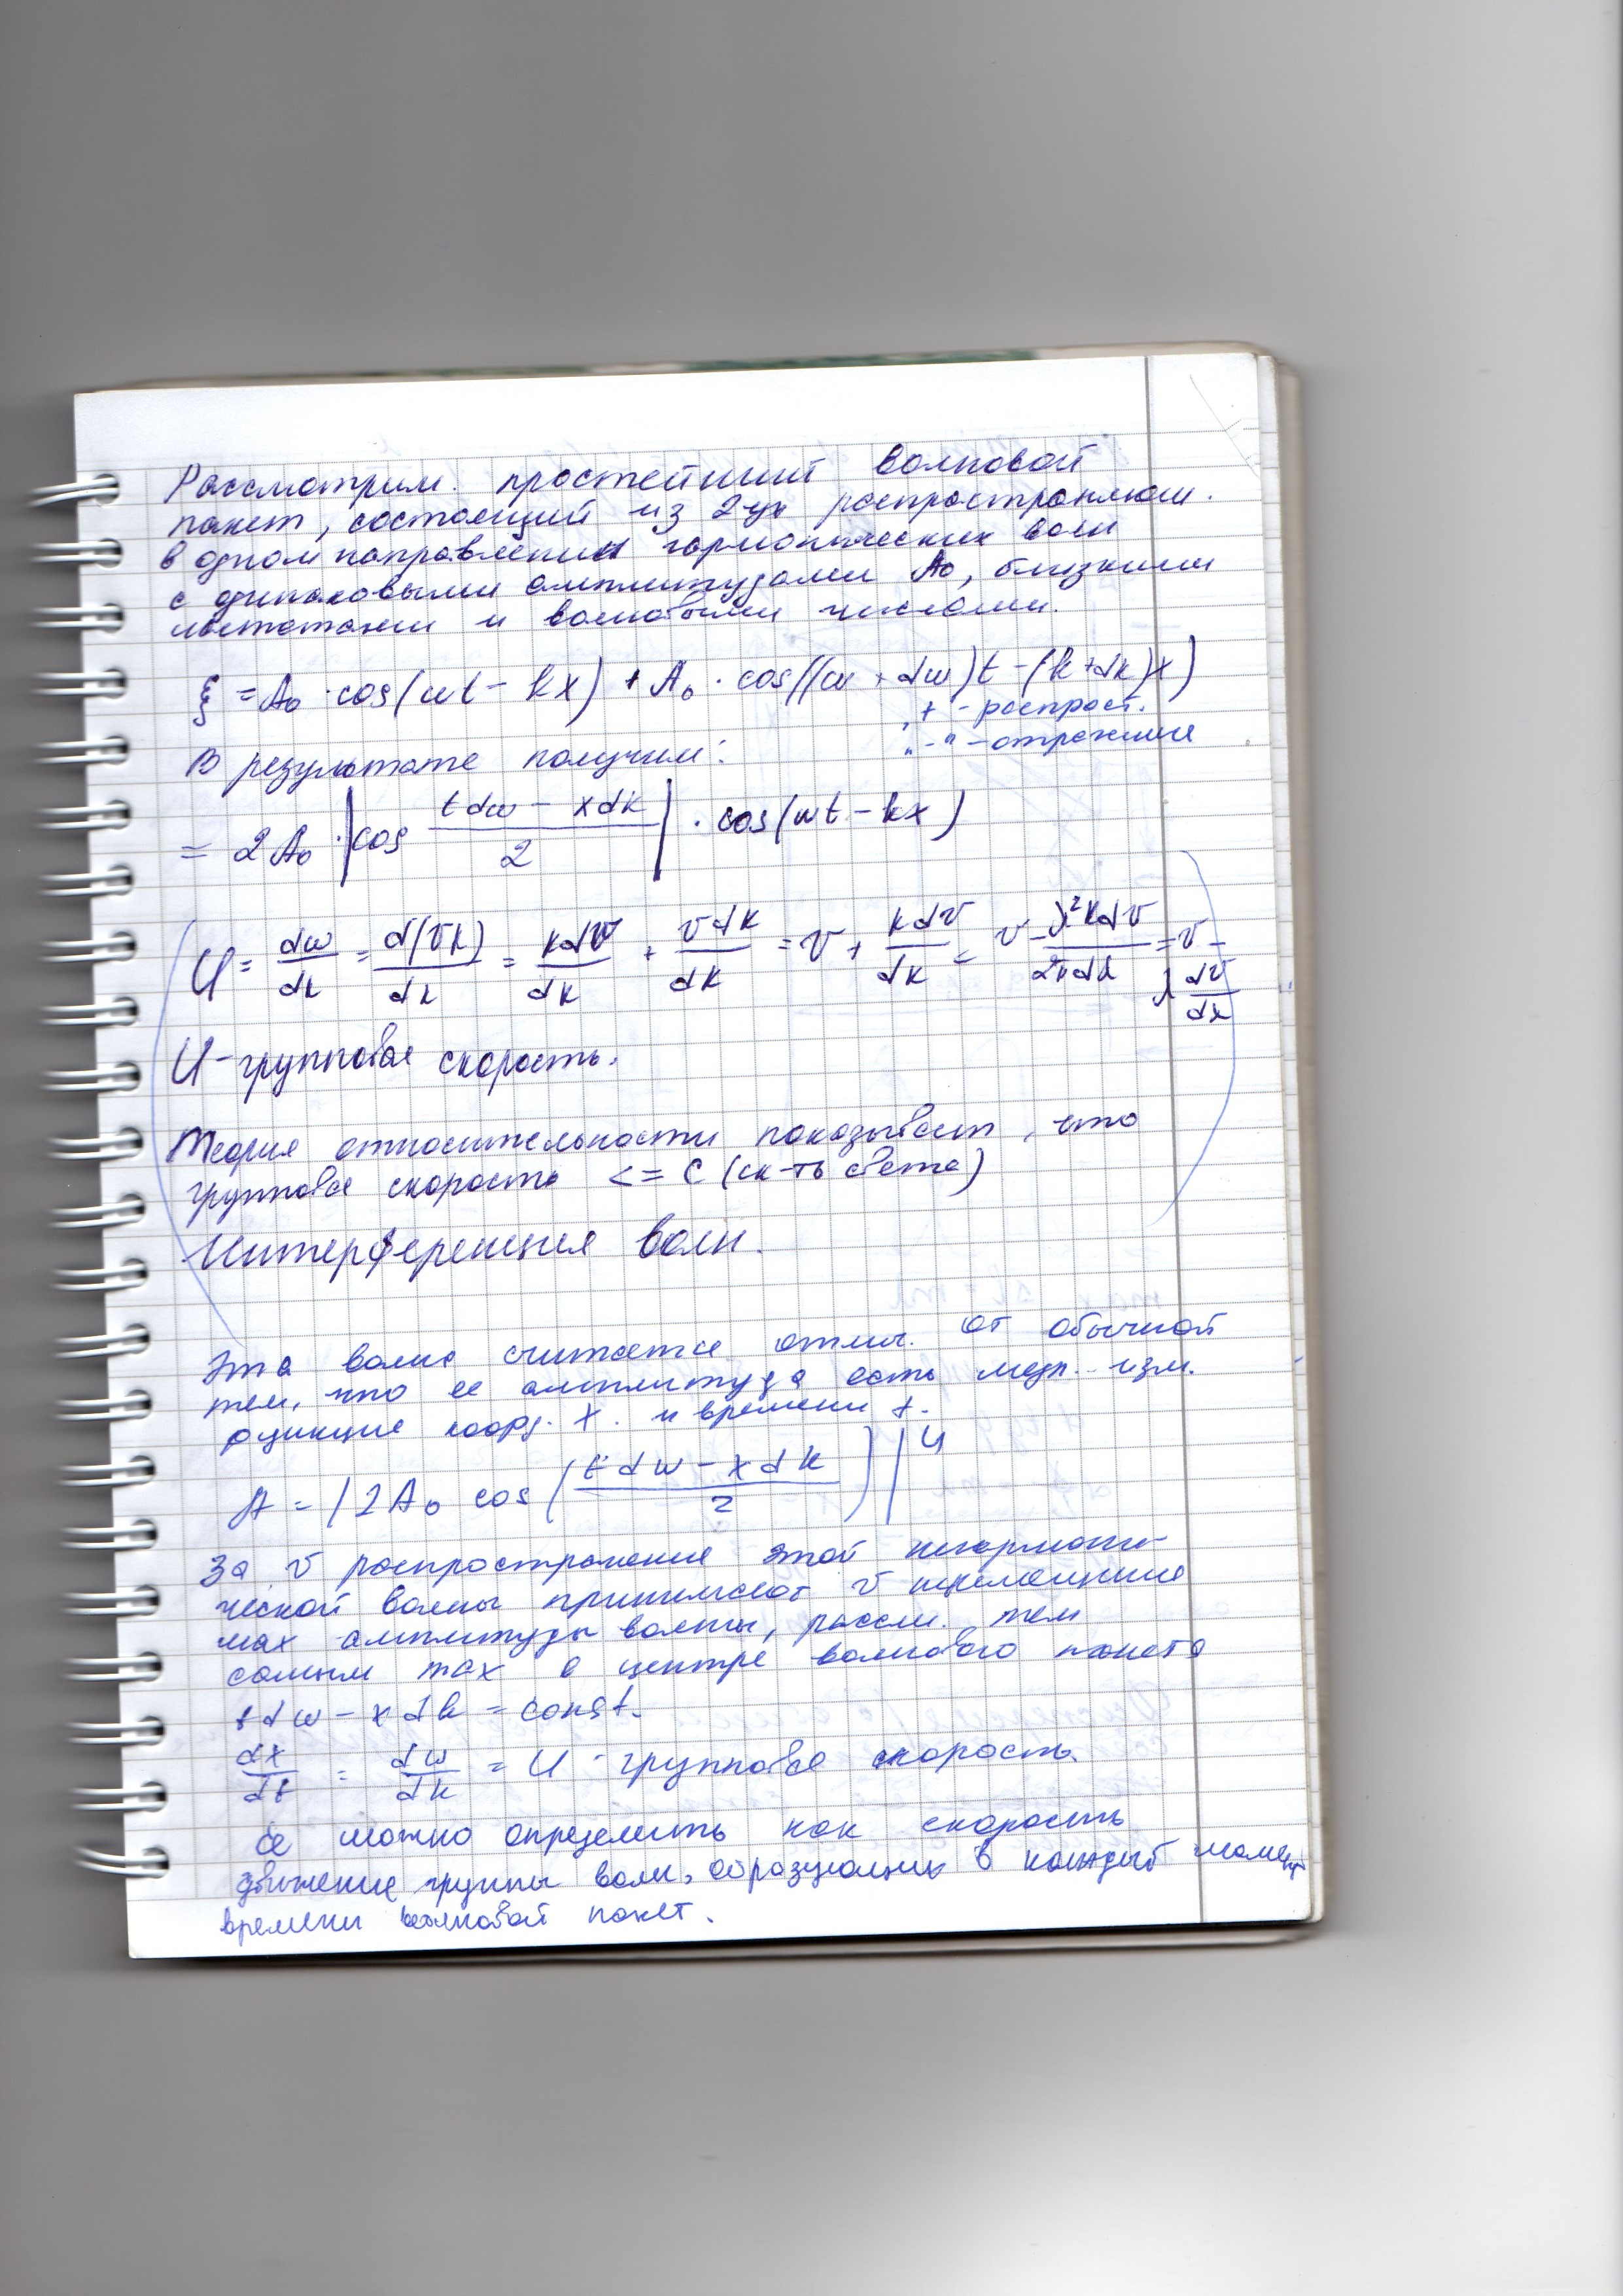 Рассмотрим. простейший волновой
пакет, состоящий из 2-ух распространяющ.
в одном направлении гармонических волн
с одинаковыми амплитудами A₀, близкими
частотами и волновыми числами.
ξ = A₀ · cos(ωt - kx) + A₀ · cos((ω + dω)t - (k + dk)x)
„+ - распрост.
„-" - отражение
В результате получим:
= 2A₀ · |cos (tdω - xdk)/2| · cos(ωt - kx)
U = dω/dk = d(vk)/dk = kdv/dk + vdk/dk = v + kdv/dk = v - λ²kdv/2πdλ = v - λ dv/dλ
U - групповая скорость.
Теория относительности показывает, что
групповая скорость <= C (ск-ть света)
Интерференция волн.
Эта волна считается отлич. от обычной
тем, что ее амплитуда есть медл. изм.
функция коорд. x. и времени t.
A = |2A₀ cos((tdω - xdk)/2)|
За v распространения этой негармони-
ческой волны принимают v перемещения
max амплитуды волны, рассм. тем
самым max в центре волнового пакета
tdω - xdk = const.
dx/dt = dω/dk = U - групповая скорость.
Её можно определить как скорость
движение группы волн, образующих в каждый момент
времени волновой пакет.